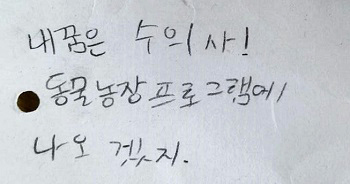 내꿈은 수의사!
동물농장프로그램에
나오겠지.